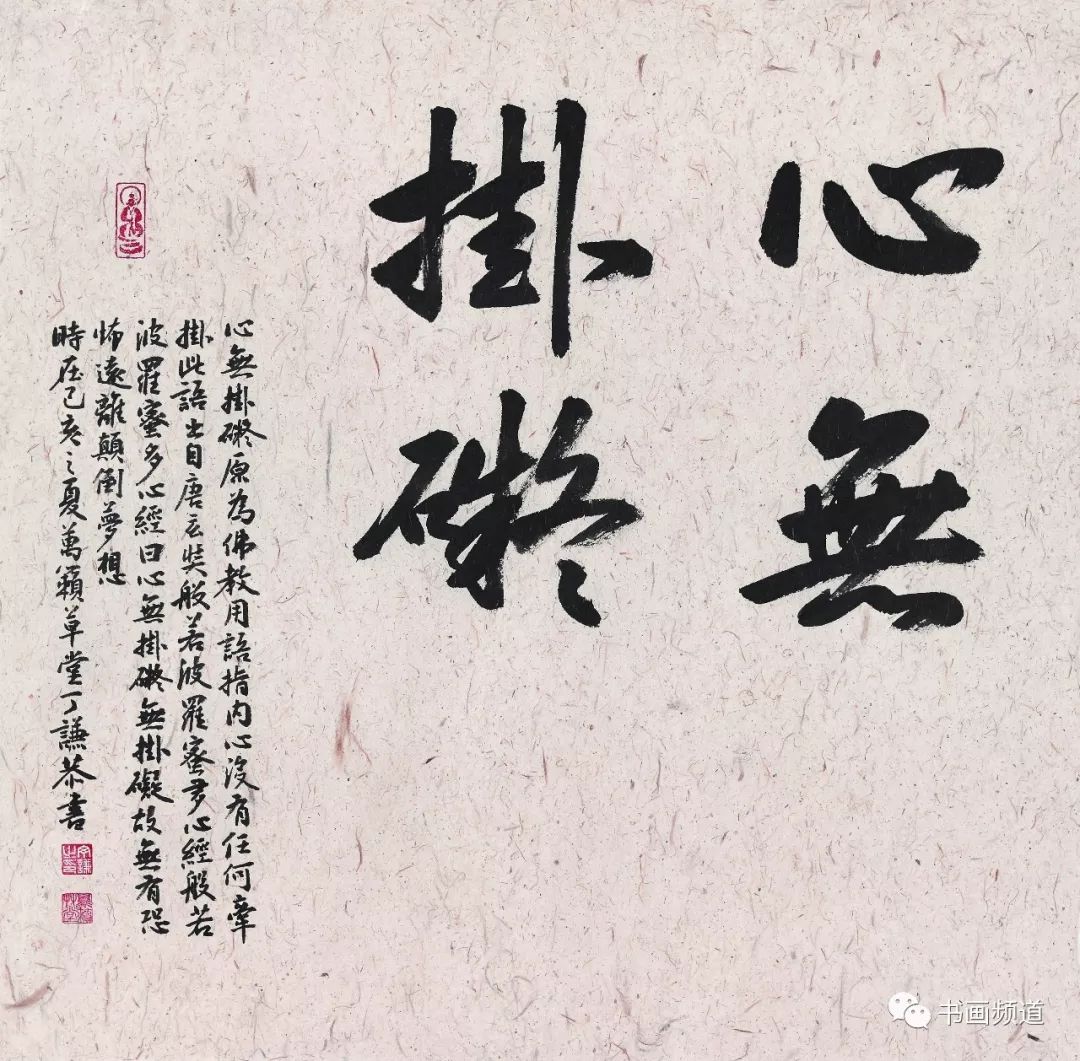 心無
掛礙
心無掛礙原為佛教用語指内心沒有任何牽
掛此語出自唐玄奘般若波羅蜜多心經般若
波羅蜜多心經曰心無掛礙無掛礙故無有恐
怖遠離顛倒夢想
時在己亥之夏萬籟草堂丁謙恭書
书画频道